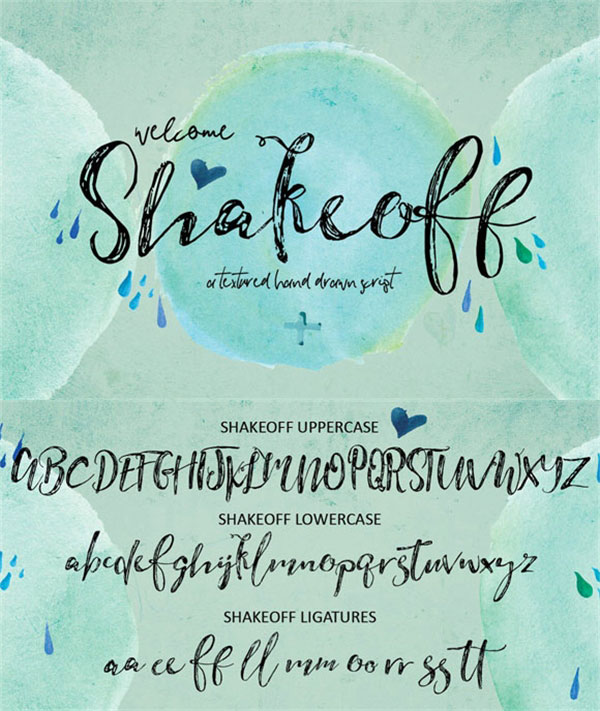 welcome
Shakeoff
a textured hand drawn script
SHAKEOFF UPPERCASE
ABCDEFGHIJKLMNOPQRSTUVWXYZ
SHAKEOFF LOWERCASE
abcdefghijklmnopqrstuvwxyz
SHAKEOFF LIGATURES
aa ee ff ll mm oo rr ss tt